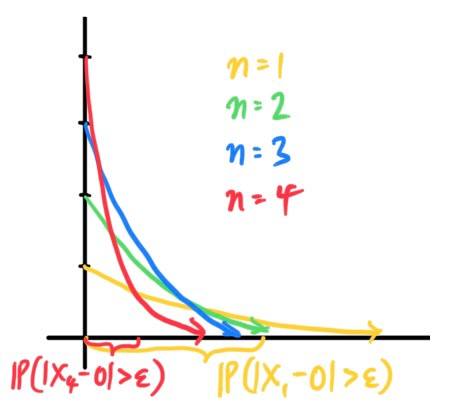 n = 1
n = 2
n = 3
n = 4
IP(|X₄-0|>ε) IP(|X₁-0|>ε)